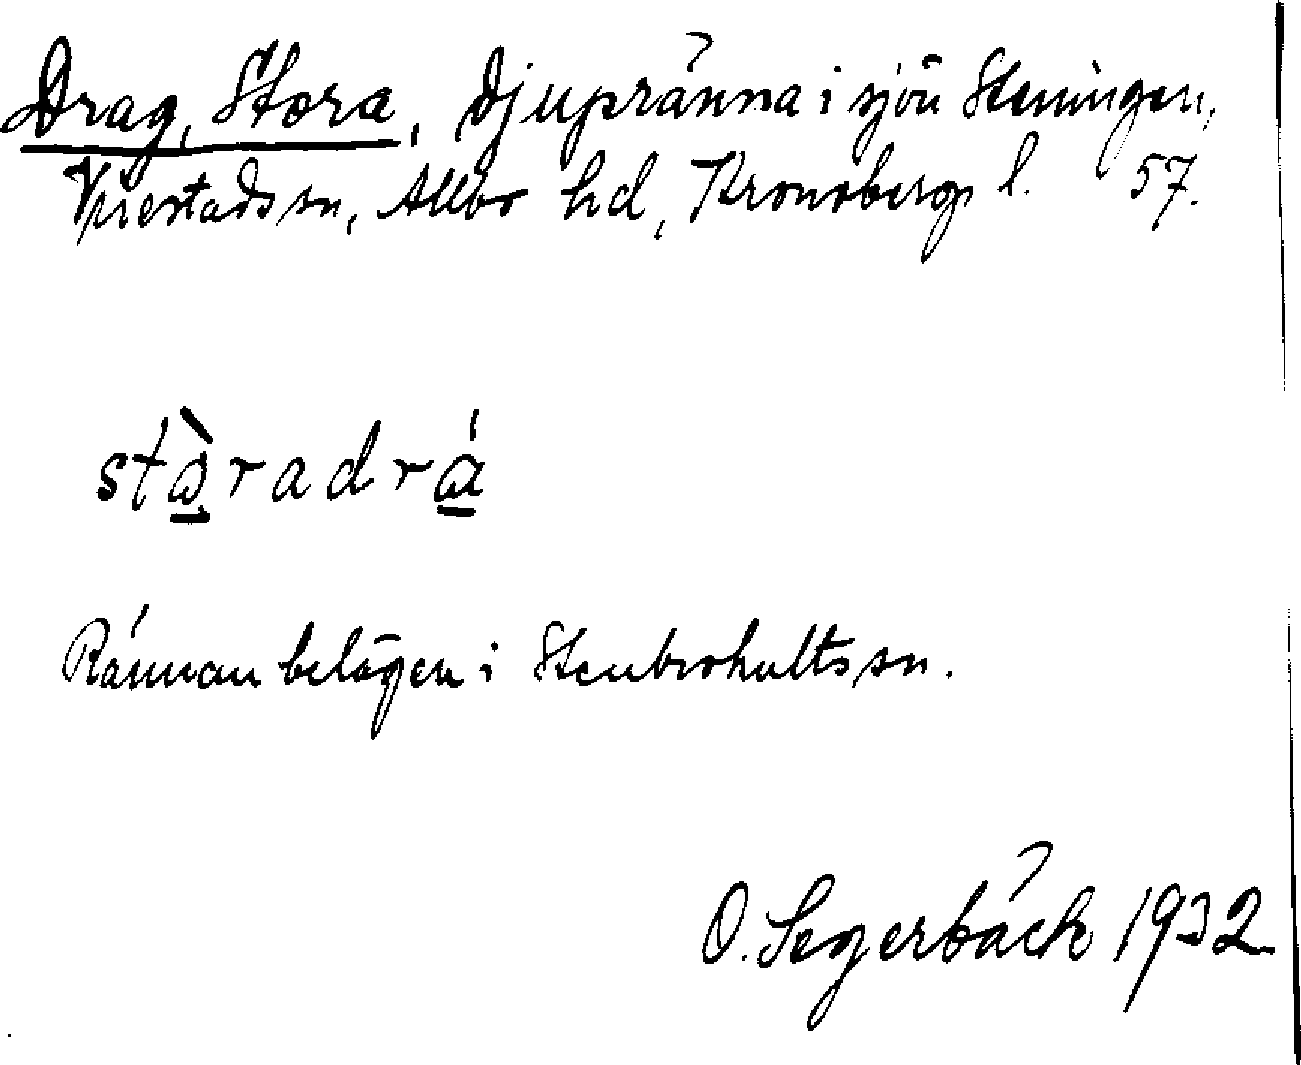 Drag, Stora, djupränna i sjön Steningen,
Virestads sn, Allbo hd, Kronobergs l. 57.
stὰradrá
Rännan belägen i Stenbrohults sn.
O. Segerbäck 1932